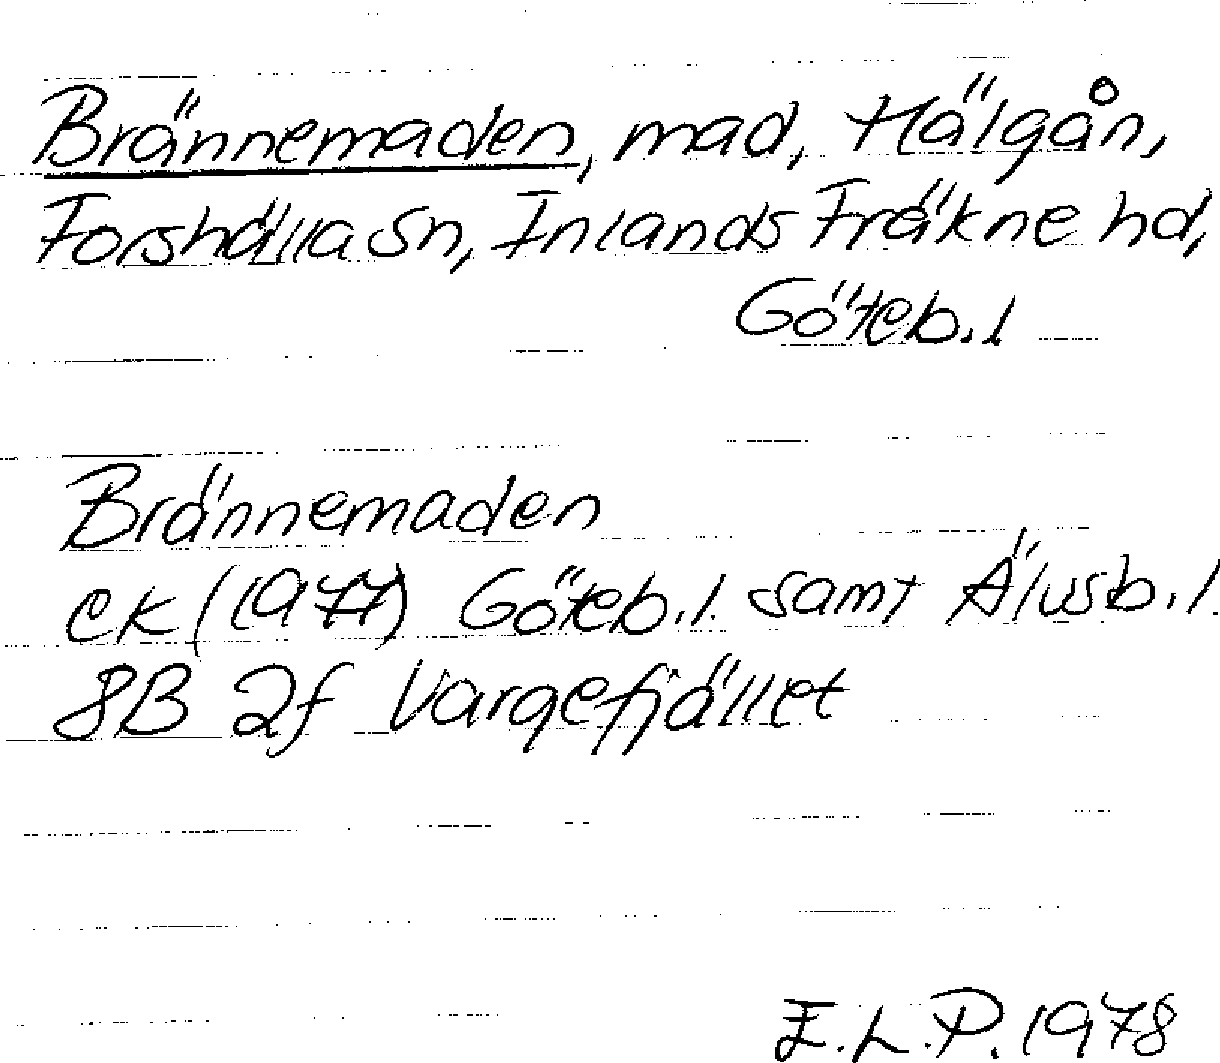 Brännemaden, mad, Hälgån,
Forshälla sn, Inlands Fräkne hd,
Göteb.l
Brännemaden
ek (1977) Göteb.l. samt Älvsb.l.
8B 2f Vargefjället
E.L.P. 1978